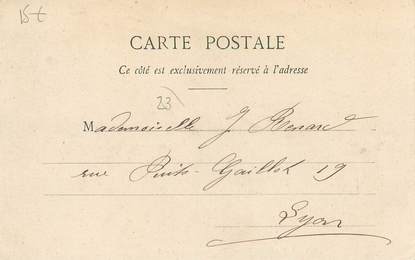 15€
CARTE POSTALE
Ce côté est exclusivement réservé à l'adresse
23
Mademoiselle J. Renard
rue Puits-Gaillot 19
Lyon